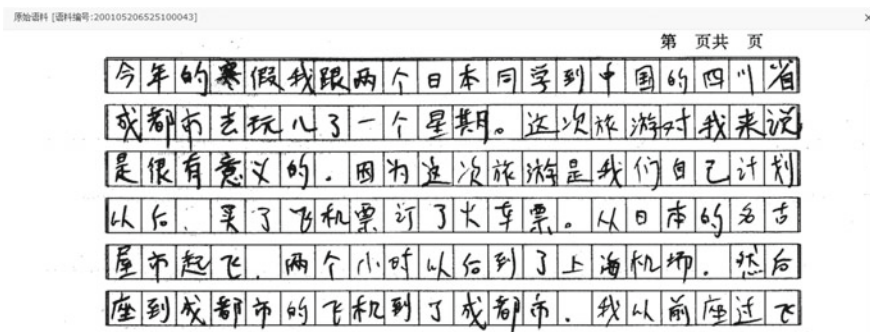 原始语料 [语料编号:200105206525100043]
×
第 页共 页
今年的寒假我跟两个日本同学到中国的四川省
成都市去玩儿了一个星期。这次旅游对我来说
是很有意义的.因为这次旅游是我们自己计划
以后、买了飞机票订了火车票。从日本的名古
屋市起飞.两个小时以后到了上海机场.然后
座到成都市的飞机到了成都市.我以前座过飞